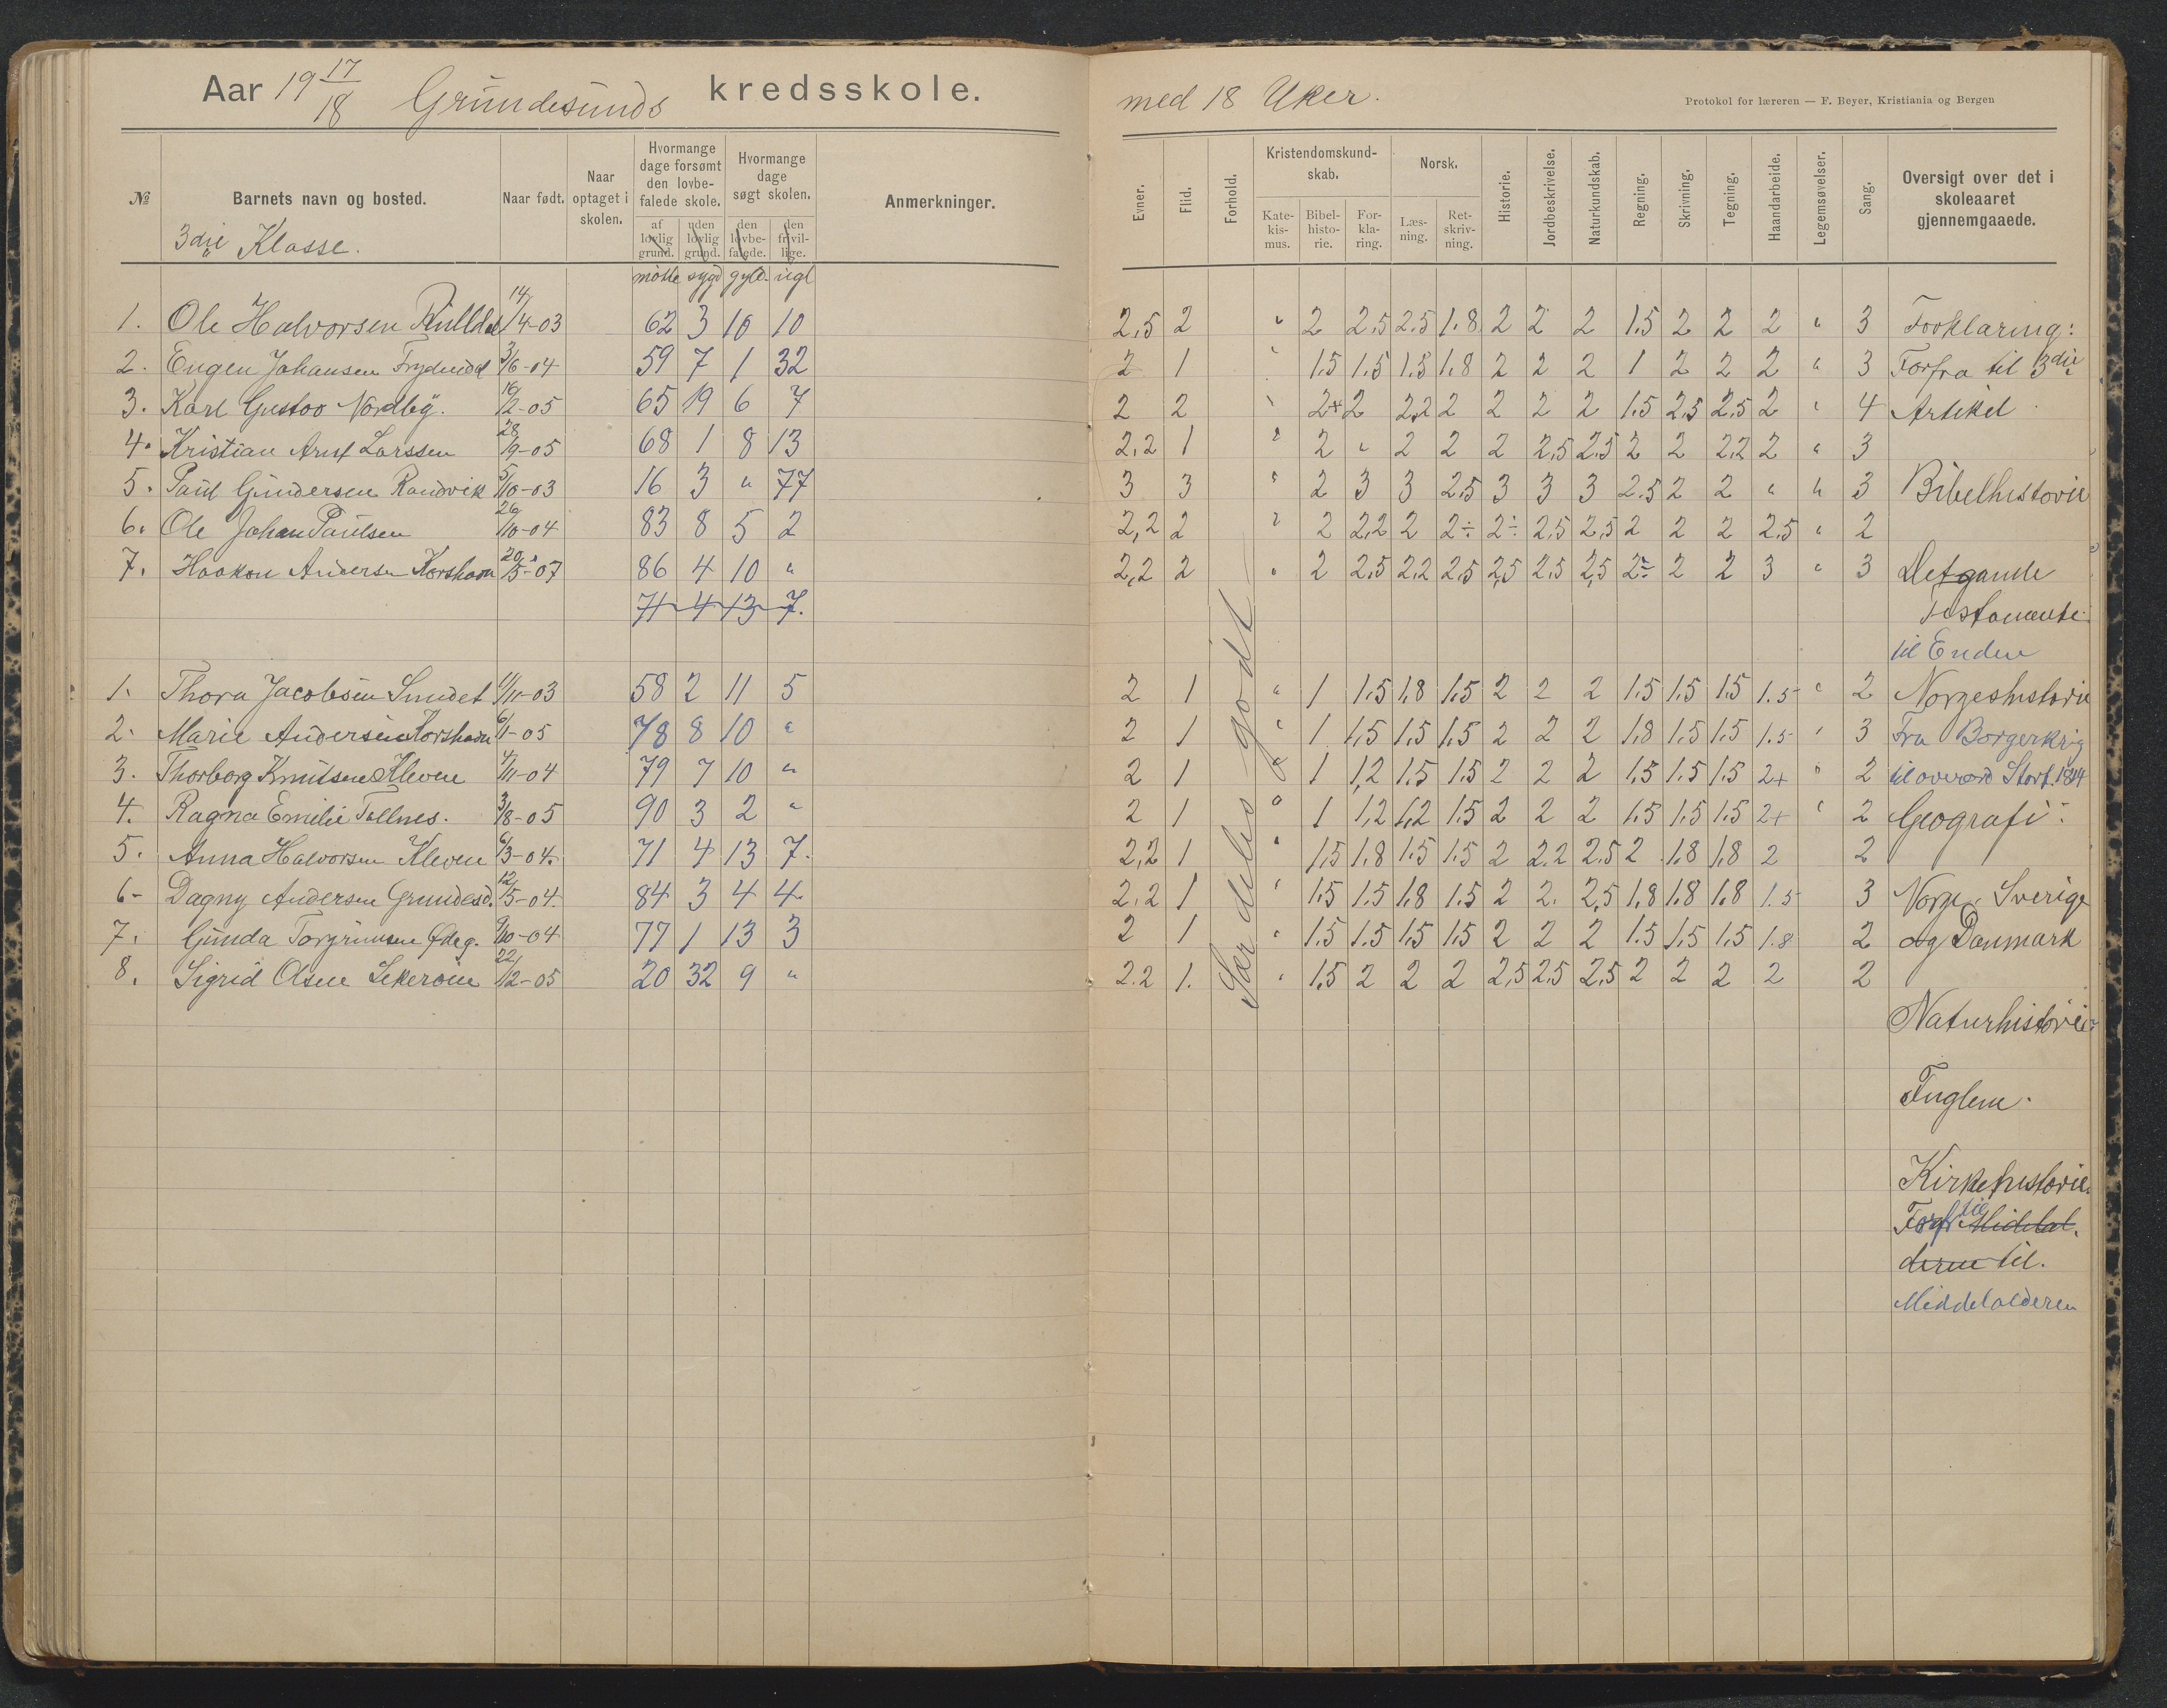 Aar 19 17/18 Grundesunds kredsskole.
med 18 Uker.
Protokol for læreren — F. Beyer, Kristiania og Bergen
№ Barnets navn og bosted. Naar født. Naar optaget i skolen. Hvormange dage forsømt den lovbefalede skole. Hvormange dage søgt skolen. Anmerkninger.
af lovlig grund. uden lovlig grund. den lovbefalede. den frivillige.
Evner. Flid. Forhold. Kristendomskundskab. Norsk. Historie. Jordbeskrivelse. Naturkundskab. Regning. Skrivning. Tegning. Haandarbeide. Legemsøvelser. Sang. Oversigt over det i skoleaaret gjennemgaaede.
Katekismus. Bibelhistorie. Forklaring. Læsning. Retskrivning.
3die Klasse.
møtte sygd gyld. ugl
1. Ole Halvorsen 14/4-03 62 3 10 10 2,5 2 " 2 2.5 2.5 1.8 2 2 2 1.5 2 2 2 " 3 Forklaring:
2. Eugen Johansen 3/6-04 59 7 1 32 2 1 " 1.5 1.5 1.5 1.8 2 2 2 1 2 2 2 " 3 Forfra til 3die
3. Karl Gustov Nordby. 16/2-05 65 19 6 7 2 2 " 2+ 2 2,2 2 2 2 2 1.5 2,5 2,5 2 " 4 Artikel
4. Kristian Larssen 28/9-05 68 1 8 13 2,2 1 " 2 " 2 2 2 2,5 2,5 2 2 2,2 2 " 3
5. Paul Gundersen Randvik 5/10-03 16 3 " 77 3 3 " 2 3 3 2,5 3 3 3 2.5 2 2 " " 3 Bibelhistorie
6. Ole Johan Paulsen 26/10-04 83 8 5 2 2,2 2 " 2 2,2 2 2÷ 2÷ 2,5 2,5 2 2 2 2,5 " 2
7. Haakon Andersen Korshavn 20/5-07 86 4 10 " 2,2 2 " 2 2.5 2,2 2,5 2,5 2.5 2,5 2÷ 2 2 3 " 3 Det gamle
71 4 13 7. testamente
til Enden
1. Thora Jacobsen Sundet 11/11-03 58 2 11 5 2 1 " 1 1.5 1,8 1,5 2 2 2 1.5 1.5 1.5 1.5 " 2 Norgeshistorie
2. Marie Andersen Korshavn 6/1-05 78 8 10 " 2 1 " 1 1,5 1.5 1.5 2 2 2 1.8 1.5 1.5 1.5 " 3 Fra Borgerkrig
3. Thorborg Knutsen Kleven 4/11-04 79 7 10 " 2 1 " 1 1,2 1.5 1.5 2 2 2 1.5 1.5 1.5 2+ " 2 til overord Stort. 1814
4. Ragna Emilie Tallnes. 3/8-05 90 3 2 " 2 1 " 1 1,2 1,2 1.5 2 2 2 1.5 1.5 1.5 2+ " 2 Geografi:
5. Anna Halvorsen Kleven 6/3-04. 71 4 13 7. 2,2 1 " 1.5 1.8 1.5 1.5 2 2.2 2.5 2 1.8 1.8 2 2
6- Dagny Andersen Grundesd. 12/5-04. 84 3 4 4 2,2 1 " 1.5 1.5 1.8 1.5 2 2. 2,5 1,8 1.8 1.8 1.5 3 Norge, Sverige
7. Gunda Torgrimsen Ødeg. 9/10-04 77 1 13 3 2 1 " 1.5 1.5 1.5 1.5 2 2 2 1.5 1,5 1.5 1.8 2 og Danmark
8. Sigrid Olsen Sekeroien 22/12-05 20 32 9 " 2.2 1. " 1.5 2 2 2 2,5 2.5 2,5 2 2 2 2 2
Særdeles godt
Naturhistorie
Fuglene.
Kirkehistorie
Forfr til Middelal.
derne til.
Middelalderen